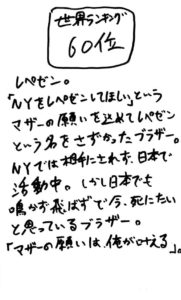 世界ランキング
60位
レペゼン。
「NYをレペゼンしてほしい」という
マザーの願いを込めてレペゼン
という名をさずかったブラザー。
NYでは相手にされず、日本で
活動中。しかし日本でも
鳴かず飛ばずで今、死にたい
と思っているブラザー。
「マザーの願いは、俺が叶える」。